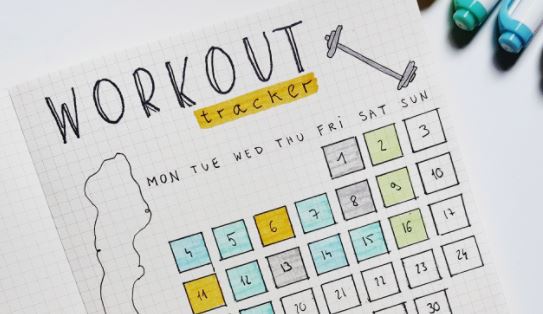 WORKOUT
tracker
MON TUE WED THU FRI SAT SUN
1 2 3
4 5 6 7 8 9 10
11 12 13 14 15 16 17
20 21 22 23 24
30